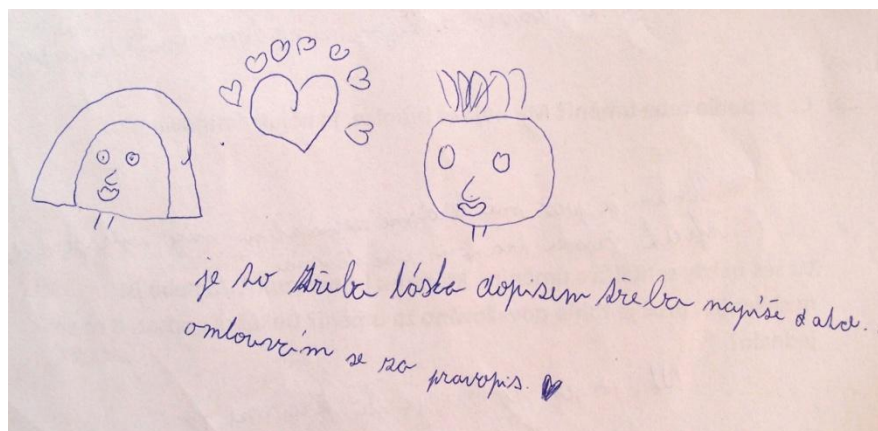 je to třeba láska dopisem třeba napíše dalce.
omlouvám se za pravopis.